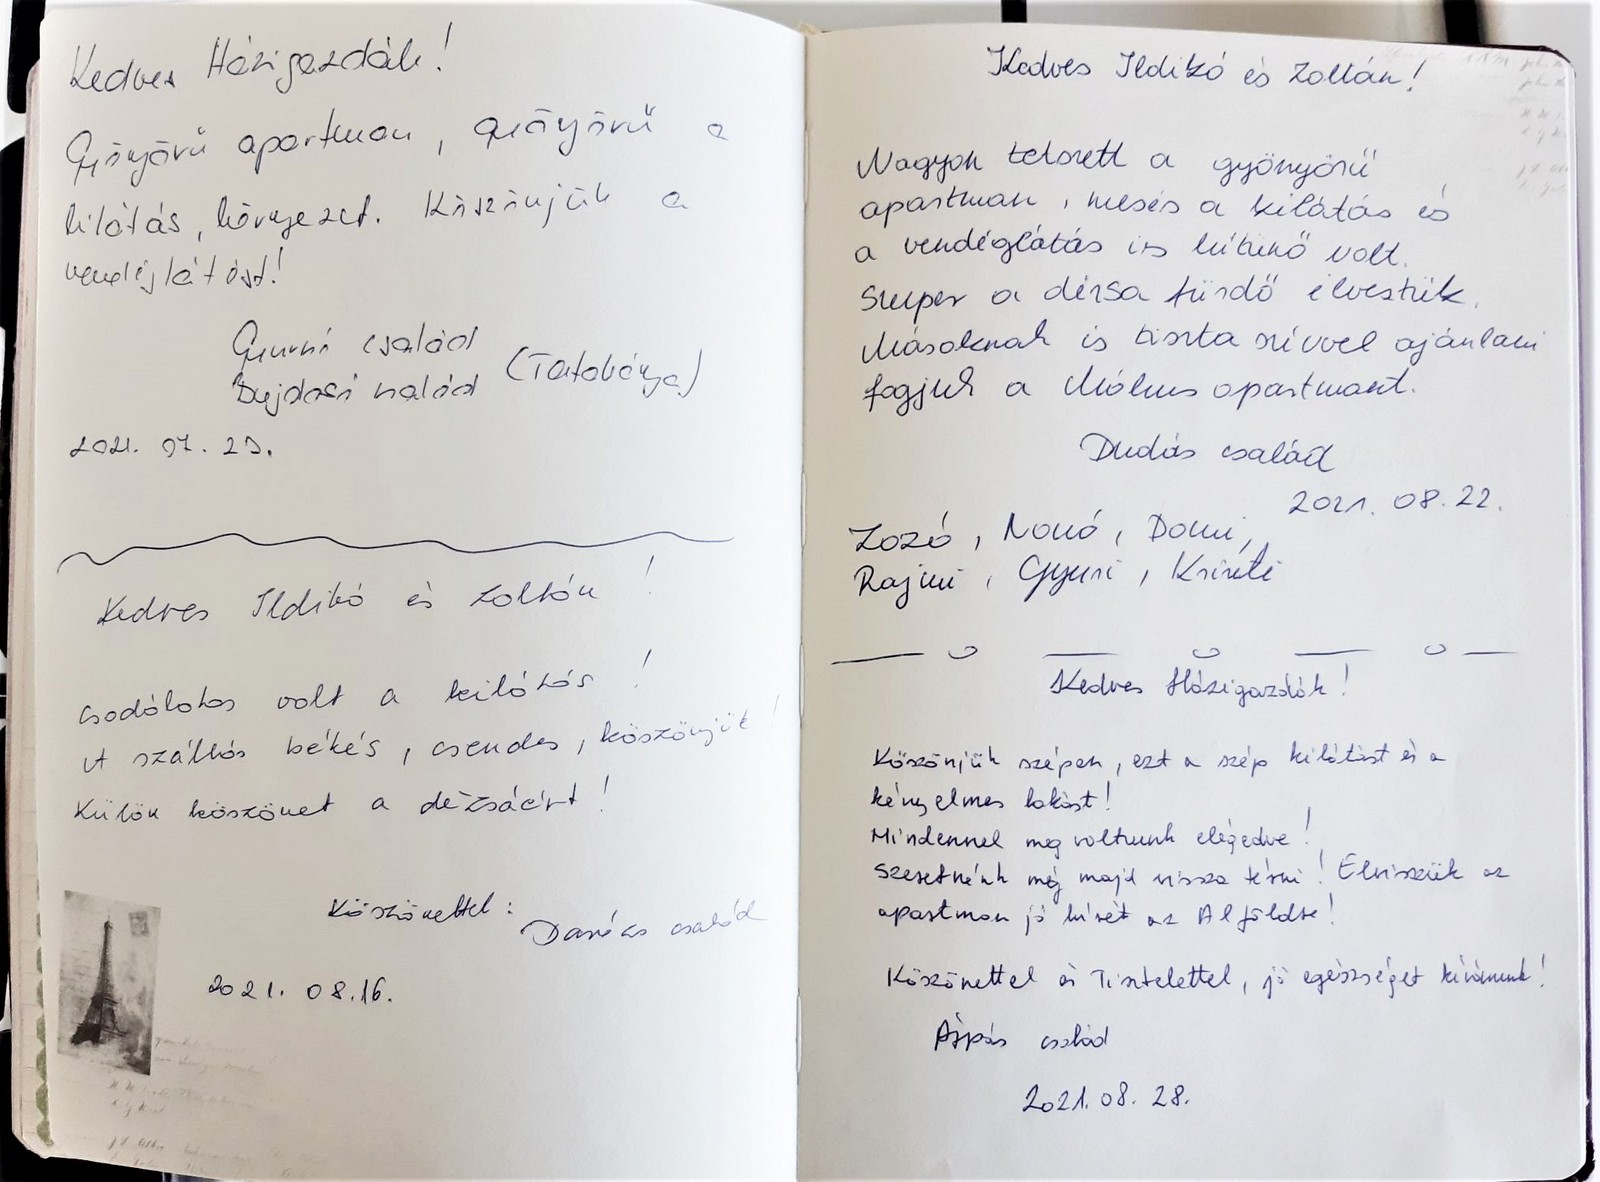 Kedves Házigazdák!
Gyönyörű apartman, gyönyörű a
kilátás, környezet. Köszönjük a
vendéglátást!
család
Bujdosó család (Tatabánya)
2021. 07. 23.
Kedves Ildikó és Zoltán!
Csodálatos volt a kilátás!
A szállás békés, csendes, köszönjük!
Külön köszönet a dézsáért!
Köszönettel:
család
2021. 08.16.
Kedves Ildikó és Zoltán!
Nagyon tetszett a gyönyörű
apartman, mesés a kilátás és
a vendéglátás is kitünő volt.
Szuper a dézsa fürdő élveztük.
Másoknak is tiszta szívvel ajánlani
fogjuk a Mólnus apartmant.
Dudás család
2021. 08. 22.
Zozó, Nonó, Domi,
Rajmi, Gyuri, Kriszti
Kedves Házigazdák!
Köszönjük szépen, ezt a szép kilátást és a
kényelmes lakást!
Mindennel meg voltunk elégedve!
Szeretnénk még majd vissza térni! Elvisszük az
apartman jó hírét az Alföldre!
Köszönettel és Tisztelettel, jó egészséget kívánunk!
Árpás család
2021. 08. 28.